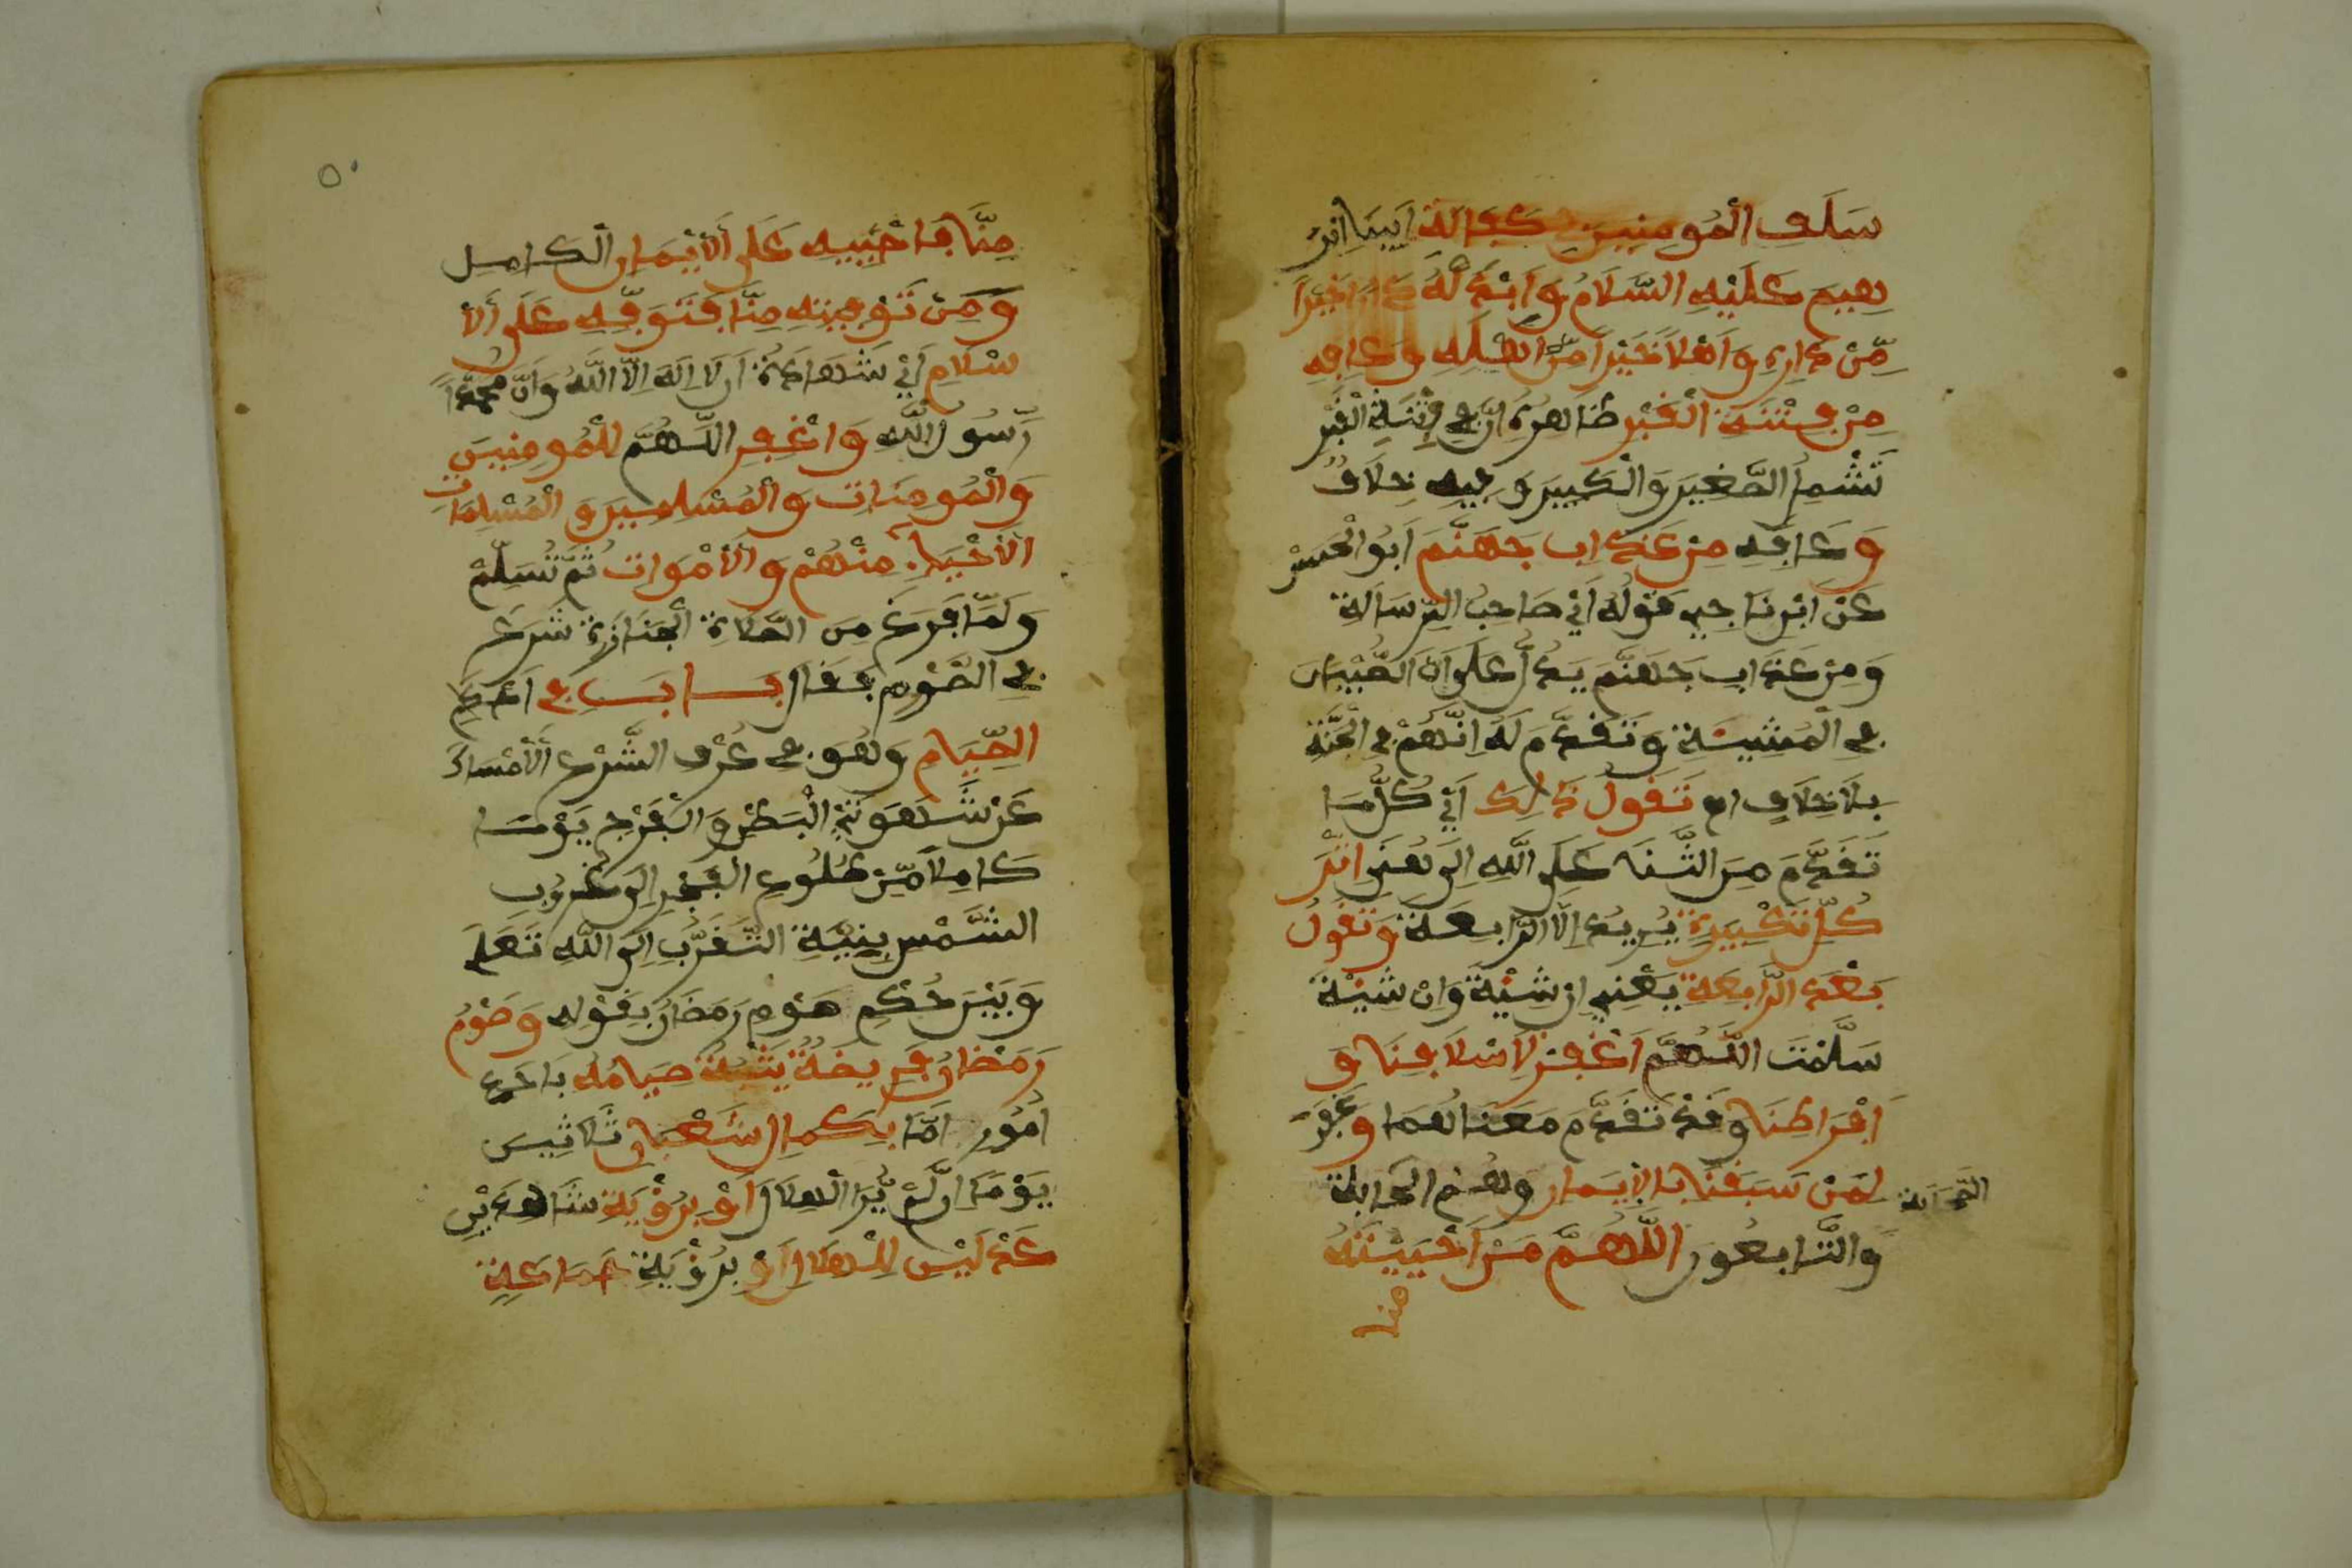 سَلَفِ الْمُومِنِينَ فِي كَفَالَةِ أَبِينَا إِبْرَ
هِيمَ عَلَيْهِ السَّلَامُ وَابْدِلْهُ دَارًا خَيْرًا
مِّنْ دَارِهِ وَأَهْلًا خَيْرًا مِّنْ أَهْلِهِ وَعَافِهِ
مِنْ فِتْنَةِ الْقَبْرِ ظَاهِرُهُ أَنَّ فِي فِتْنَةِ الْقَبْرِ
تَشْمَلُ الصَّغِيرَ وَالْكَبِيرَ وَفِيهِ خِلَافٌ
وَعَافِهِ مِنْ عَذَابِ جَهَنَّمَ أَبُو الْحَسَنْ
عَنْ ابْنِ نَاجِي قَوْلُهُ أَيْ صَاحِبُ الرِّسَالَةِ
وَمِنْ عَذَابِ جَهَنَّمَ يَدُلُّ عَلَى أَنَّ الصِّبْيَانَ
فِي الْمَشِيئَةِ وَتَقَدَّمَ لَهُ إِنَّهُمْ فِي الْجَنَّةِ
بِلَا خِلَافٍ اه تَقُولُ ذَلِكَ أَيْ كُلَّ مَا
تَقَدَّمَ مِنَ الثَّنَا عَلَى اللَّهِ إِلَى هُنَا إِثْرَ
كُلِّ تَكْبِيرَةٍ يُرِيدُ إِلَّا الرَّابِعَةَ وَتَقُولُ
بَعْدَ الرَّابِعَةِ يَعْنِي إِنْ شِئْتَ وَإِنْ شِئْتَ
سَلَّمْتَ اللَّهُمَّ اغْفِرْ لِأَسْلَافِنَا وَ
أَفْرَاطِنَا وَقَدْ تَقَدَّمَ مَعْنَاهُمَا وَاغْفِرْ
لِمَنْ سَبَقَنَا بِالْإِيمَانِ وَهُمُ الصَّحَابَةُ
الصَّحَابَة
وَالتَّابِعُونَ اللَّهُمَّ مَنْ أَحْيَيْتَهُ
منا
٥٠
مِنَّا فَأَحْيِيهِ عَلَى الْإِيمَانِ الْكَامِلِ
وَمَنْ تَوَفَّيْتَهُ مِنَّا فَتَوَفَّهِ عَلَى الْإِ
سْلَامِ أَيْ شَهَادَةُ أَن لَا إِلَهَ إِلَّا اللَّهُ وَأَنَّ مُحَمَّدًا
رَسُولُ اللَّهِ وَاغْفِرِ اللَّهُمَّ لِلْمُومِنِينَ
وَالْمُومِنَاتِ وَالْمُسْلِمِينَ وَالْمُسْلِمَاتِ
الْأَحْيَاءِ مِنْهُمْ وَالْأَمْوَاتِ ثُمَّ تُسَلِّمْ
وَلَمَّا فَرَغَ مِنَ الصَّلَاةِ الْجَنَازَةِ شَرَعَ
فِي الصَّوْمِ فَقَالَ بَابٌ فِي أَحْكَامِ
الصِّيَامِ وَهُوَ فِي عُرْفِ الشَّرْعِ الْإِمْسَاكُ
عَنْ شَهْوَتَيْ الْبَطْنِ وَالْفَرْجِ يَوْمًا
كَامِلًا مِّنْ طُلُوعِ الْفَجْرِ إِلَى غُرُوبِ
الشَّمْسِ بِنِيَّةِ التَّقَرُّبِ إِلَى اللَّهِ تَعَلَى
وَبَيَّنَ حُكْمِ صَوْمِ رَمَضَانَ بِقَوْلِهِ وَصَوْمُ
رَمَضَانَ فَرِيضَةٌ يَثْبُتُ صِيَامُهُ بِأَحَدِ
أُمُورٍ إِمَّا بِكَمَالِ شَعْبَانَ ثَلَاثِينَ
يَوْمًا إِن لَّمْ يُرَ الْهِلَالُ أَوْ بِرُؤْيَةِ شَاهِدَيْنِ
عَدْلَيْنِ لِلْهِلَالِ أَوْ بِرُؤْيَةِ جَمَاعَةٍ